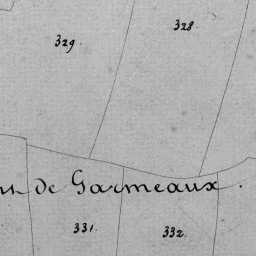 329.
328.
de Garmeaux.
331.
332.